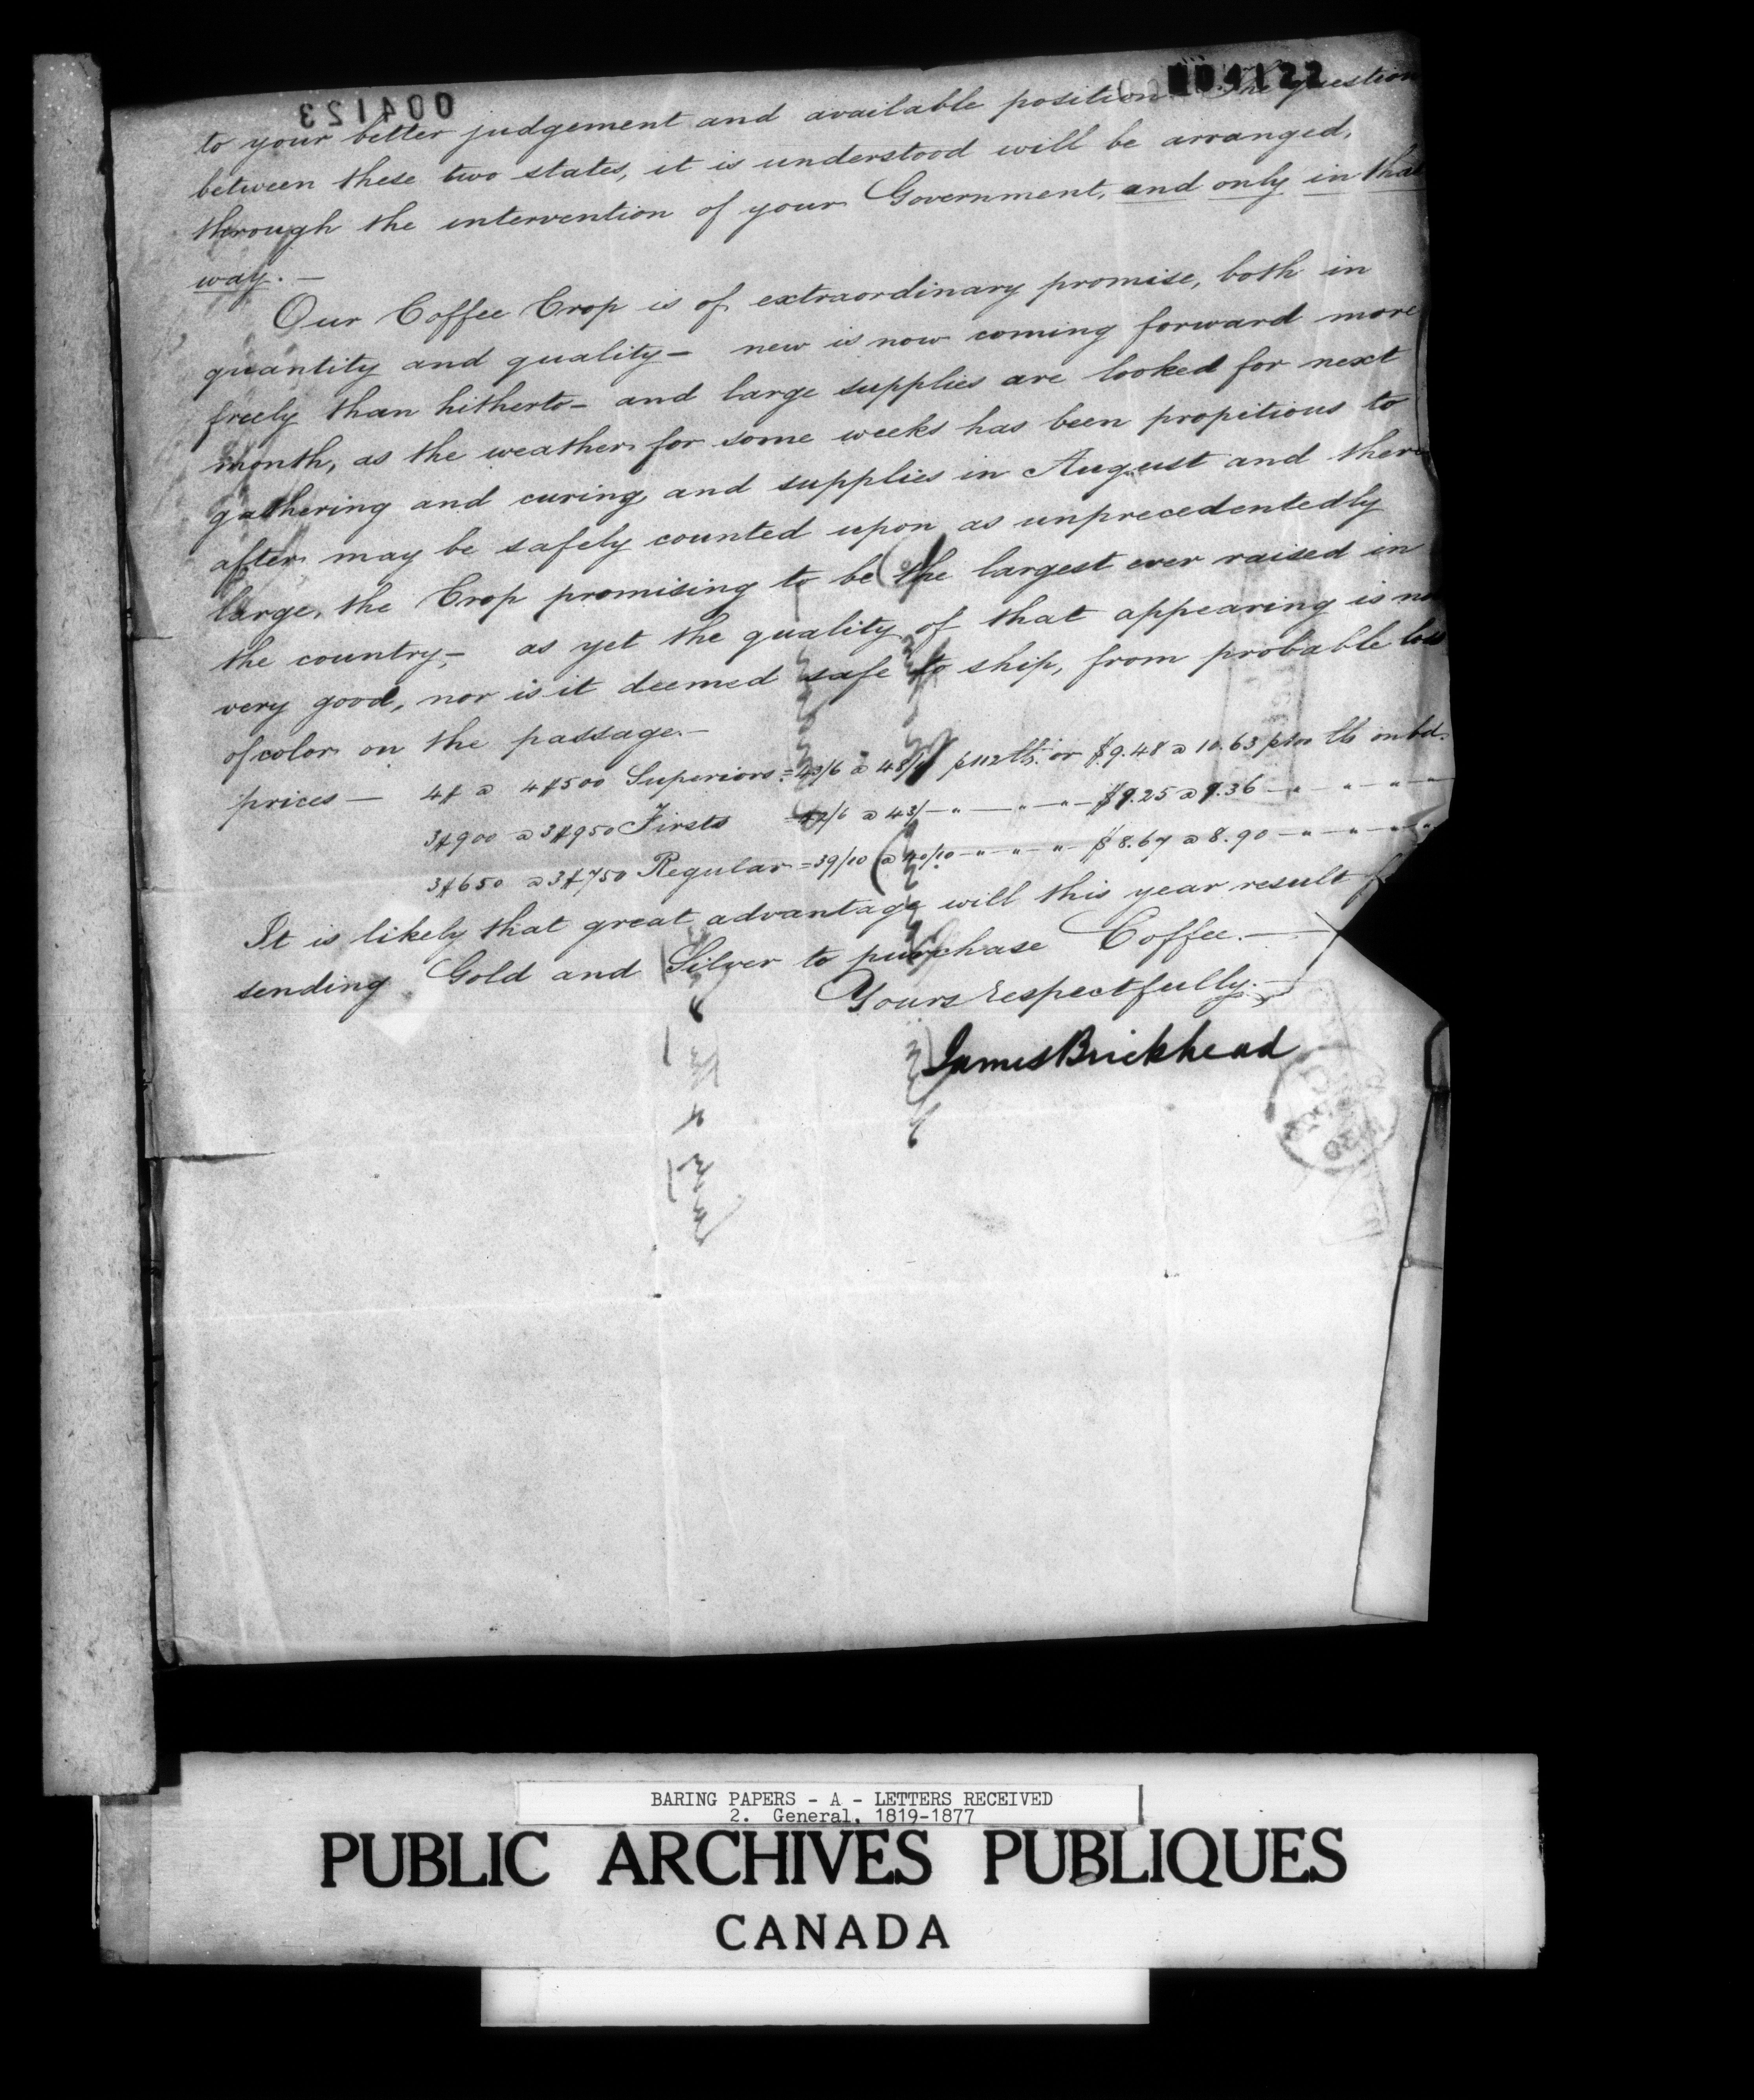 004122
to your better judgement and available position. The question
between these two states, it is understood will be arranged,
through the intervention of your Government, and only in that
way. —
Our Coffee Crop is of extraordinary promise, both in
quantity and quality — new is now coming forward more
freely than hitherto — and large supplies are looked for next
month, as the weather for some weeks has been propitious to
gathering and curing, and supplies in August and there
after may be safely counted upon as unprecedentedly
large, the Crop promising to be the largest ever raised in
the country, — as yet the quality of that appearing is
very good, nor is it deemed safe to ship, from probable loss
of color on the passage. —
prices — 4$ a 4$500 Superiors = 43/6 a 48/ p 112 lb. or $9.48 a 10.63 p 100 lb on bd.
3$900 a 3$950 Firsts = 42/6 a 43/ — " — " — " — $9.25 a 9.36 — " — " — " —
3$650 a 3$750 Regular = 39/10 a 40/10 — " — " — " — $8.67 a 8.90 — " — " — " —
It is likely that great advantage will this year result
sending Gold and Silver to purchase Coffee. —
Yours respectfully. —
James Birckhead
BARING PAPERS - A - LETTERS RECEIVED
2. General, 1819-1877
PUBLIC ARCHIVES PUBLIQUES
CANADA